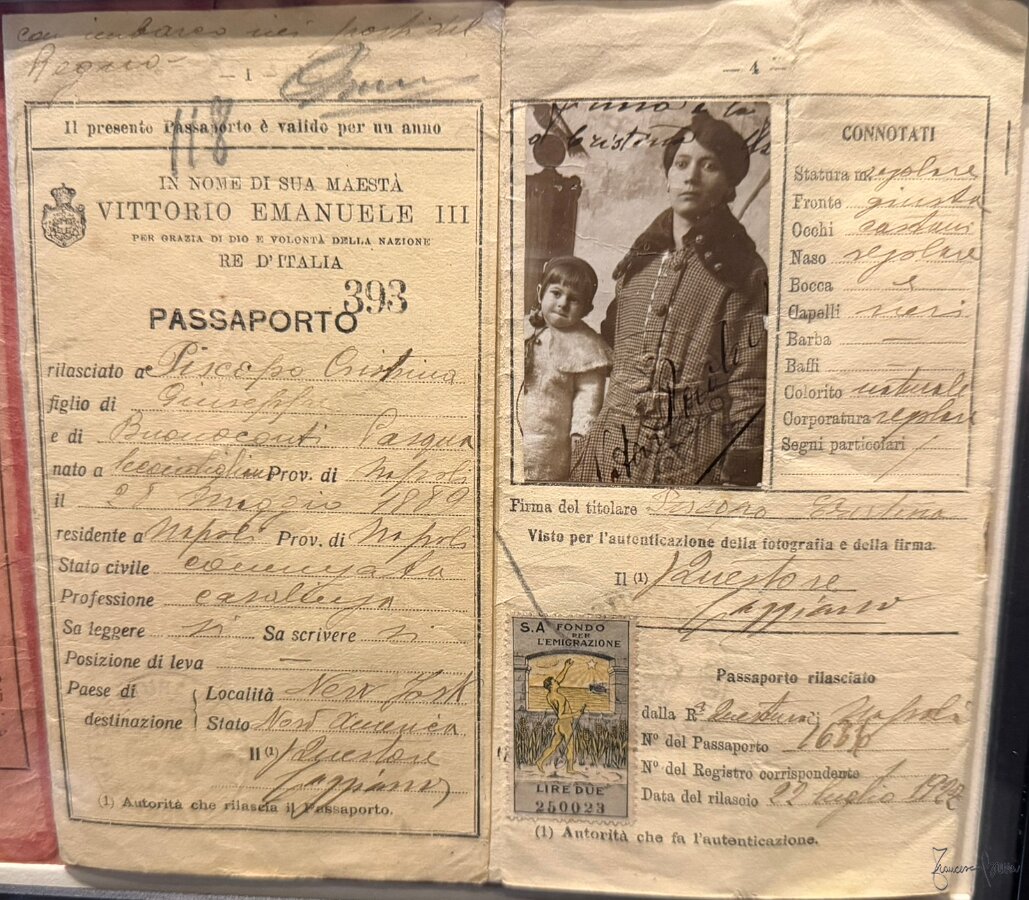 con imbarco nei porti del
Regno
— 1 —
118
Il presente Passaporto è valido per un anno
IN NOME DI SUA MAESTÀ
VITTORIO EMANUELE III
PER GRAZIA DI DIO E VOLONTÀ DELLA NAZIONE
RE D'ITALIA
393
PASSAPORTO
rilasciato a Piscopo Cristina
figlio di Giuseppe
e di Buonoconti Pasqua
nato a Prov. di Napoli
il Maggio
residente a Napoli Prov. di Napoli
Stato civile coniugata
Professione casalinga
Sa leggere si Sa scrivere si
Posizione di leva —
Paese di
destinazione
Località New York
Stato Nord America
Il (1) Questore
(1) Autorità che rilascia il Passaporto.
— 4 —
CONNOTATI
Statura m. regolare
Fronte giusta
Occhi castani
Naso regolare
Bocca
Capelli neri
Barba —
Baffi —
Colorito naturale
Corporatura regolare
Segni particolari /
Firma del titolare Piscopo Cristina
Visto per l'autenticazione della fotografia e della firma.
Il (1) Questore
S.A FONDO
PER
L'EMIGRAZIONE
LIRE DUE
250023
Passaporto rilasciato
dalla Rª Questura di Napoli
Nº del Passaporto
Nº del Registro corrispondente
Data del rilascio 22 luglio 1922
(1) Autorità che fa l'autenticazione.